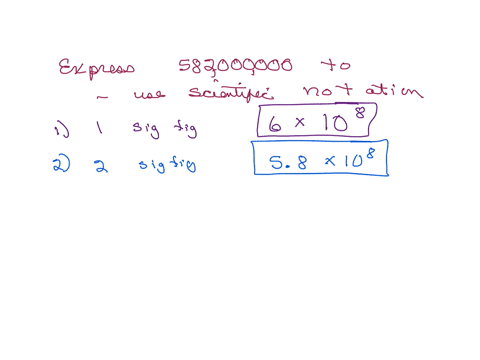 Express 582,000,000 to
~ use scientific notation
1) 1 sig fig 6 × 10⁸
2) 2 sig fig 5.8 × 10⁸